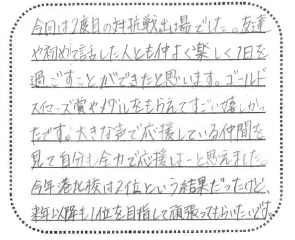 今回は2度目の対抗戦出場でした。友達
や初めて話した人とも仲よく楽しく1日を
過ごすことができたと思います。ゴールド
スイマーズ賞やメダルをもらえてすごい嬉しかっ
たです。大きな声で応援している仲間を
見て自分も全力で応援しよーと思えました。
今年港北校は2位という結果だったけど、
来年以降も1位を目指して頑張ってもらいたいです。